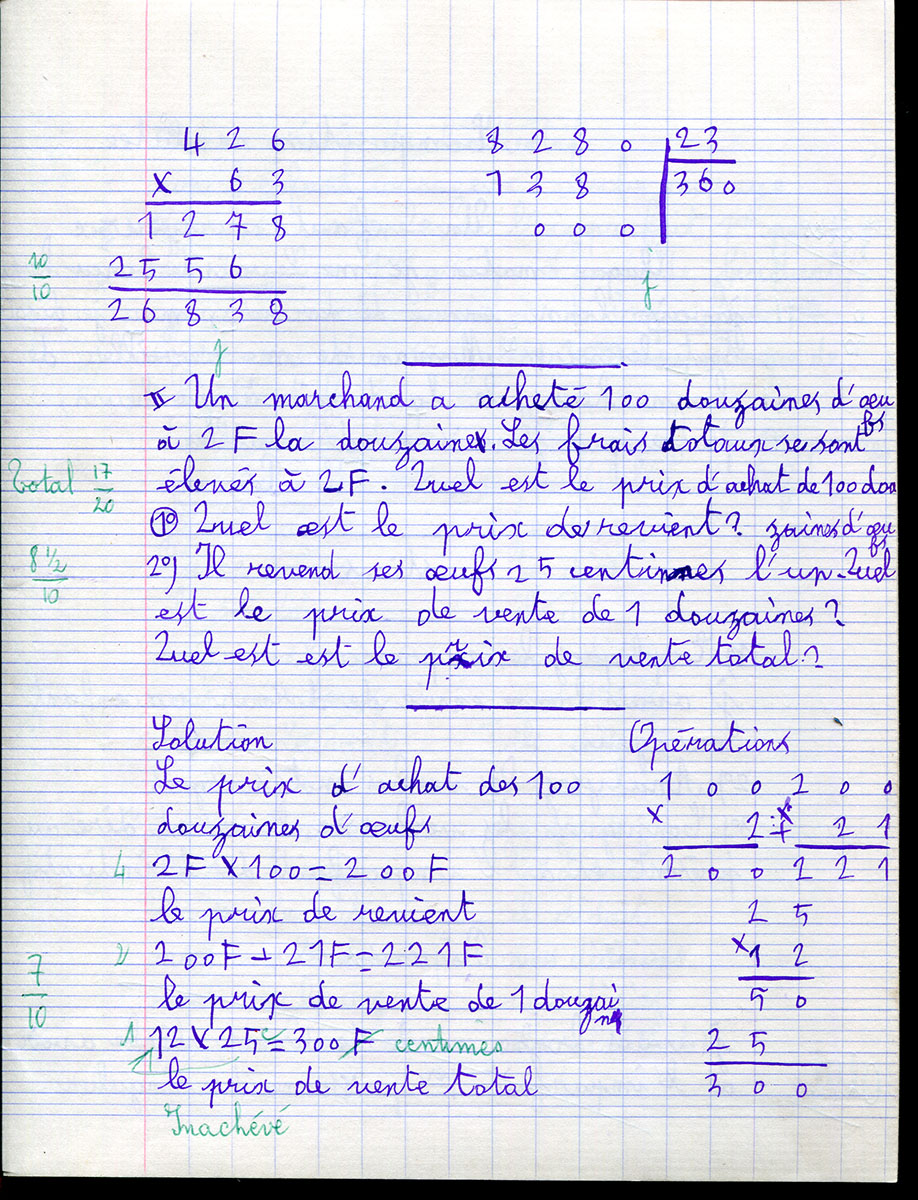 4 2 6
x 6 3
1 2 7 8
2 5 5 6
2 6 8 3 8
10/10
j
8 2 8 0 | 23
1 3 8 | 360
0 0 0
j
II Un marchand a acheté 100 douzaines d'œufs
à 2F la douzaine. Les frais totaux se sont
Total 17/20
élevés à 2F. Quel est le prix d'achat de 100 douzaines d'œufs
1º Quel est le prix de revient?
8 1/2/10
2º) Il revend ses œufs 25 centimes l'un. Quel
est le prix de vente de 1 douzaines?
Quel est est le prix de vente total?
Solution
Le prix d'achat des 100
douzaines d'œufs
4 2F x 100 = 200F
le prix de revient
2 200F + 21F = 221F
7/10
le prix de vente de 1 douzaine
1 12 x 25 = 300 F centimes
le prix de vente total
Inachévé
Opérations
1 0 0
x 2
2 0 0
2 0 0
+ 2 1
2 2 1
2 5
x 1 2
5 0
2 5
3 0 0